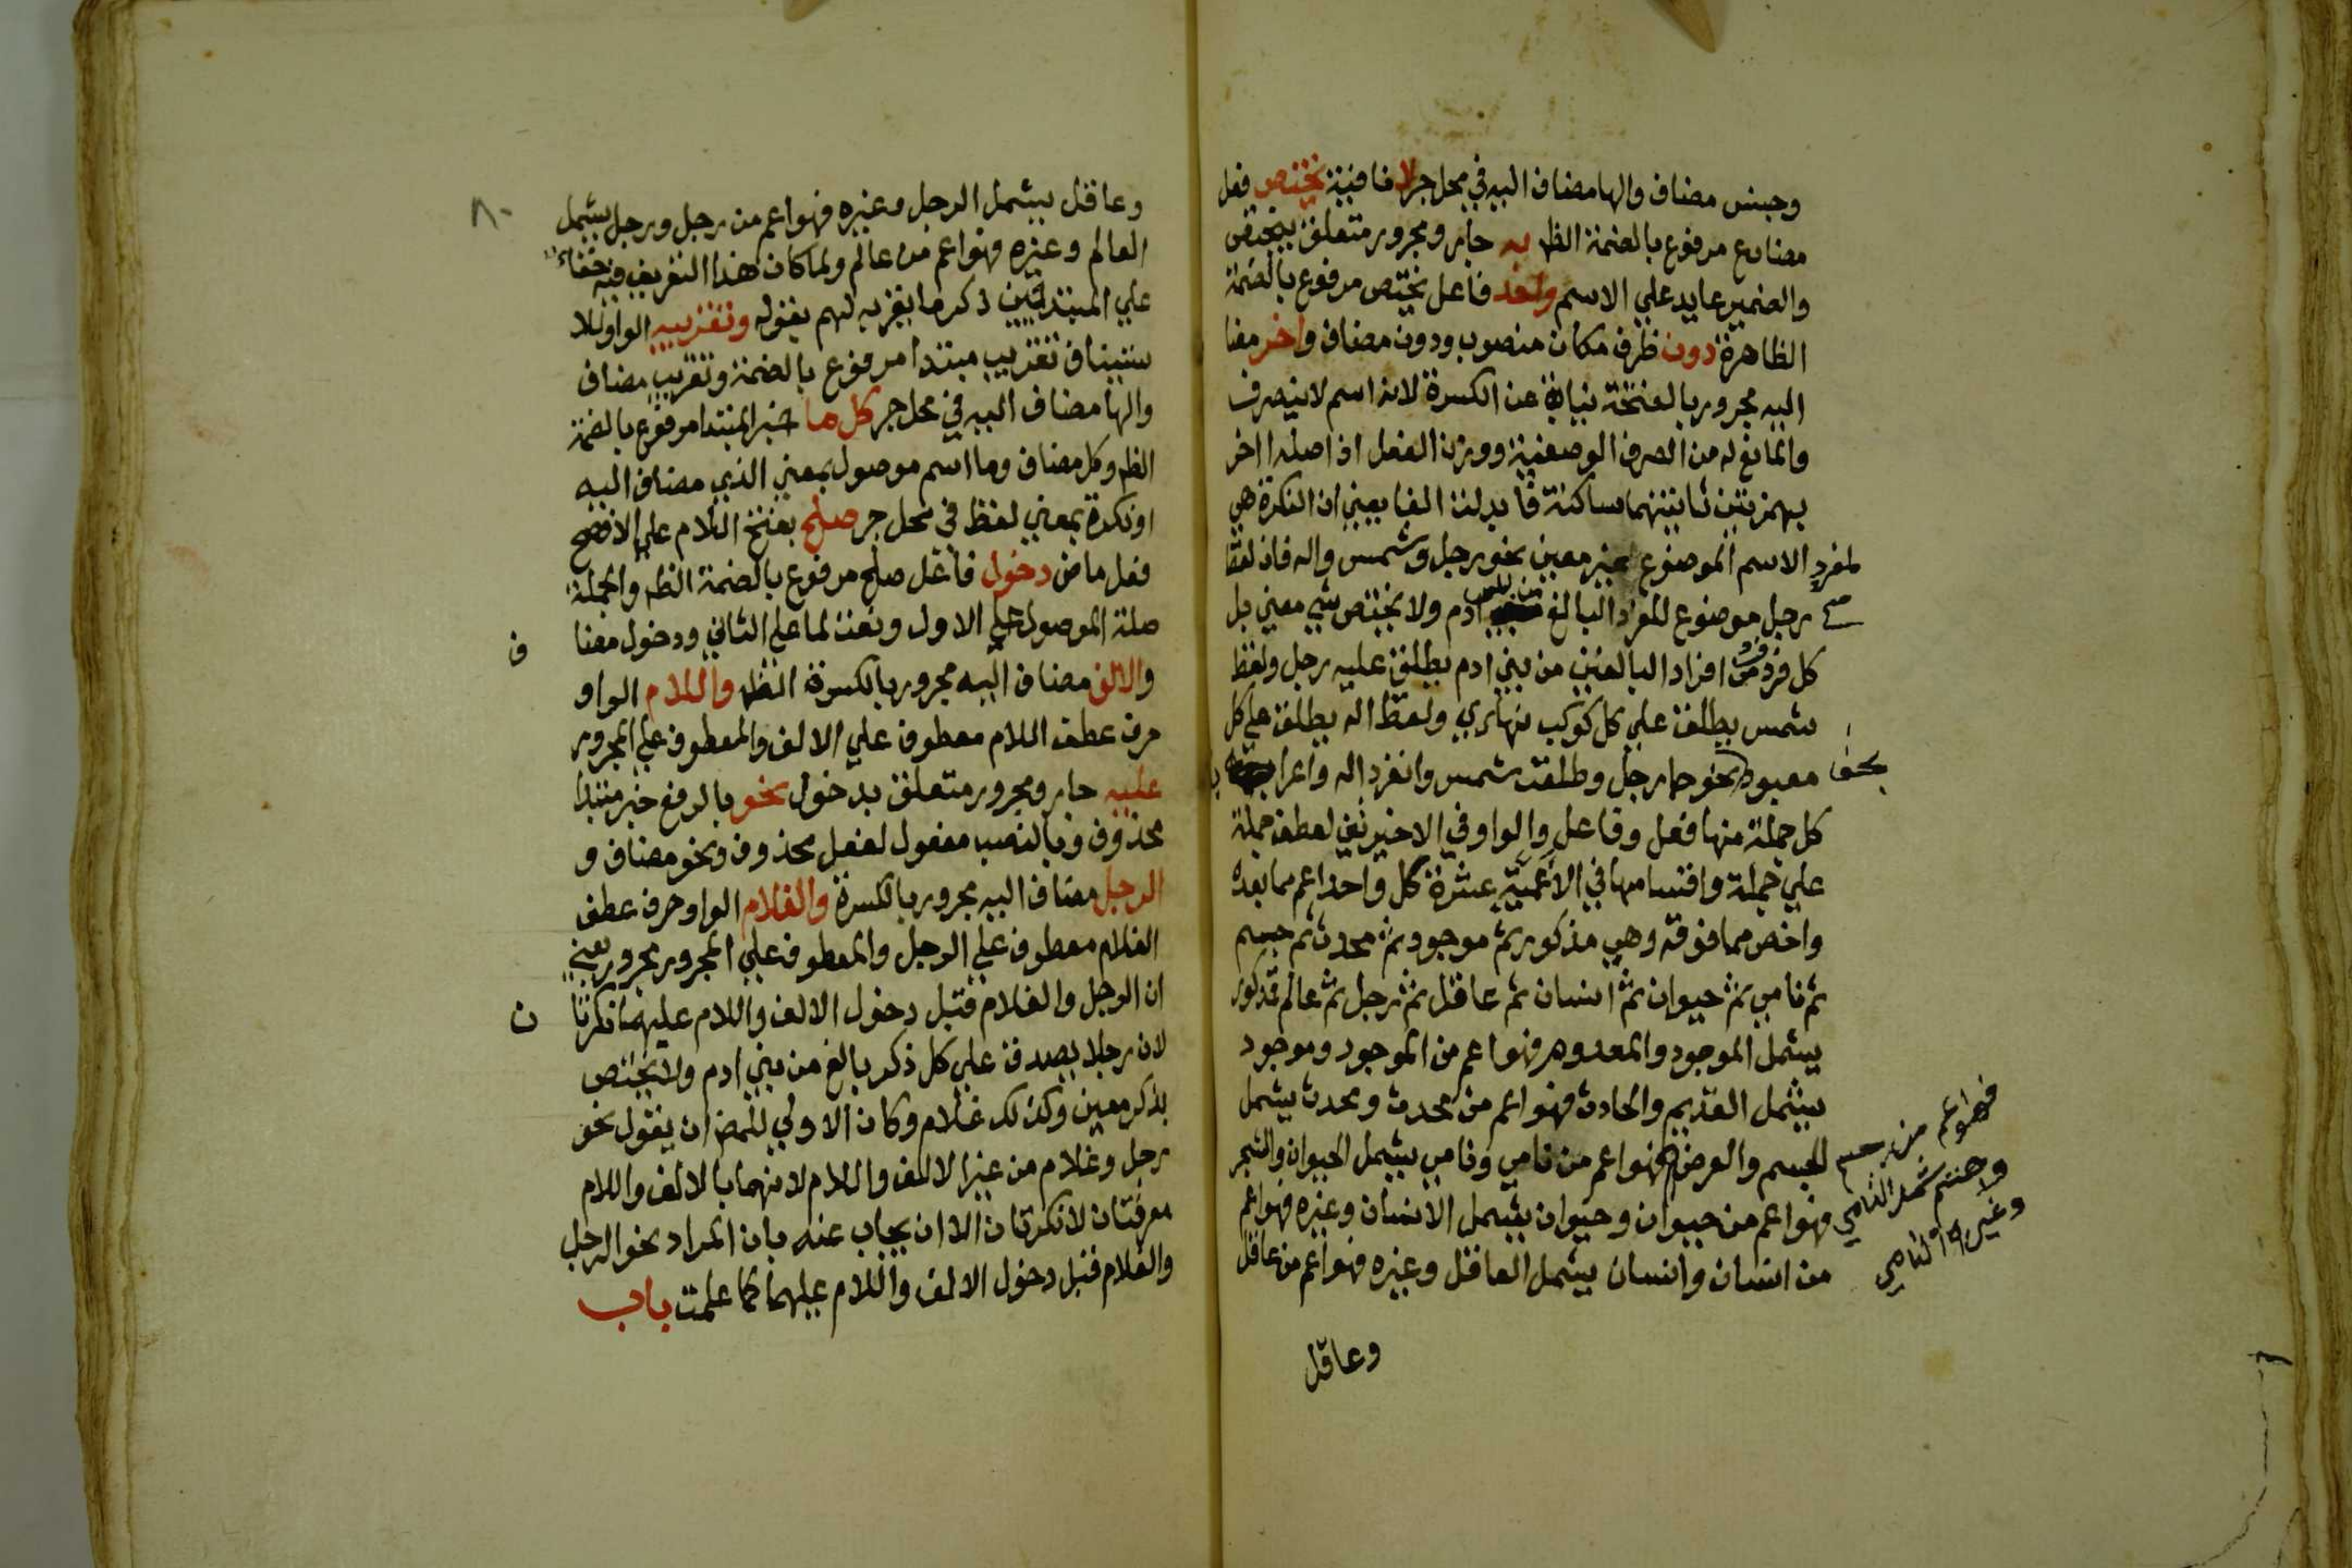 وجنس مضاف والها مضاف اليه في محل جر لا نافية يختص فعل
مضارع مرفوع بالضمة الظه به جار ومجرور متعلق بيختص
والضمير عايد علي الاسم واحد فاعل يختص مرفوع بالضمة
الظاهرة دون ظرف مكان منصوب ودون مضاف واخر مضا
اليه مجرور بالفتحة نيابة عن الكسرة لانه اسم لا ينصرف
والمانع له من الصرف الوصفية ووزن الفعل اذ اصله ااخر
بهمزتين ثانيتهما ساكنة فابدلت الفا يعني ان النكرة هي
الاسم الموضوع لغير معين نحو رجل وشمس واله فان لفظ
رجل موضوع للفرد البالغ من بني ادم ولا يختص بشي معين بل
كل فرد من افراد البالغين من بني ادم يطلق عليه رجل ولفظ
شمس يطلق علي كل كوكب نهاري ولفظ اله يطلق علي كل
معبود نحو جا رجل وطلعت شمس وانفرد اله واعراب
كل جملة منها فعل وفاعل والواو في الاخيرتين لعطف جملة
علي جملة واقسامها في الاعمية عشرة كل واحد اعم مما بعده
واخص مما فوقه وهي مذكور ثم موجود ثم محدث ثم جسم
ثم نامي ثم حيوان ثم انسان ثم عاقل ثم رجل ثم عالم فمذكور
يشمل الموجود والمعدوم فهو اعم من الموجود وموجود
يشمل القديم والحادث فهو اعم من محدث ومحدث يشمل
الجسم والعرض فهو اعم من نامي ونامي يشمل الحيوان والشجر
فهو اعم من حيوان وحيوان يشمل الانسان وغيره فهو اعم
من انسان وانسان يشمل العاقل وغيره فهو اعم من عاقل
وعاقل
فهو اعم من جسم
وجسم يشمل النامي
وغير النامي
وعاقل يشمل الرجل وغيره فهو اعم من رجل ورجل يشمل
العالم وغيره فهو اعم من عالم ولما كان هذا التعريف فيه خفاء
علي المبتدئين ذكر ما يقربه لهم بقوله وتقريبه الواو للا
ستيناف تقريب مبتدا مرفوع بالضمة وتقريب مضاف
والها مضاف اليه في محل جر كل ما خبر المبتدا مرفوع بالضمة
الظه وكل مضاف وما اسم موصول بمعني الذي مضاف اليه
او نكرة بمعني لفظ في محل جر صلح بفتح اللام علي الافصح
فعل ماض دخول فاعل صلح مرفوع بالضمة الظه والجملة
صلة الموصول علي الاول ونعت لما علي الثاني ودخول مضا
ف
والالف مضاف اليه مجرور بالكسرة الظه واللام الواو
حرف عطف اللام معطوف علي الالف والمعطوف علي المجرور
عليه جار ومجرور متعلق بدخول نحو بالرفع خبر مبتدا
محذوف وبالنصب مفعول لفعل محذوف ونحو مضاف و
الرجل مضاف اليه مجرور بالكسرة والغلام الواو حرف عطف
الغلام معطوف علي الرجل والمعطوف علي المجرور مجرور يعني
ان الرجل والغلام قبل دخول الالف واللام عليهما نكرتا
ن
لان رجلا يصدق علي كل ذكر بالغ من بني ادم ولا يختص
بذكر معين وكذلك غلام وكان الاولي للمص ان يقول نحو
رجل وغلام من غير الالف واللام لانهما بالالف واللام
معرفتان لا نكرتان الا ان يجاب عنه بان المراد نحو الرجل
والغلام قبل دخول الالف واللام عليهما كما علمت باب